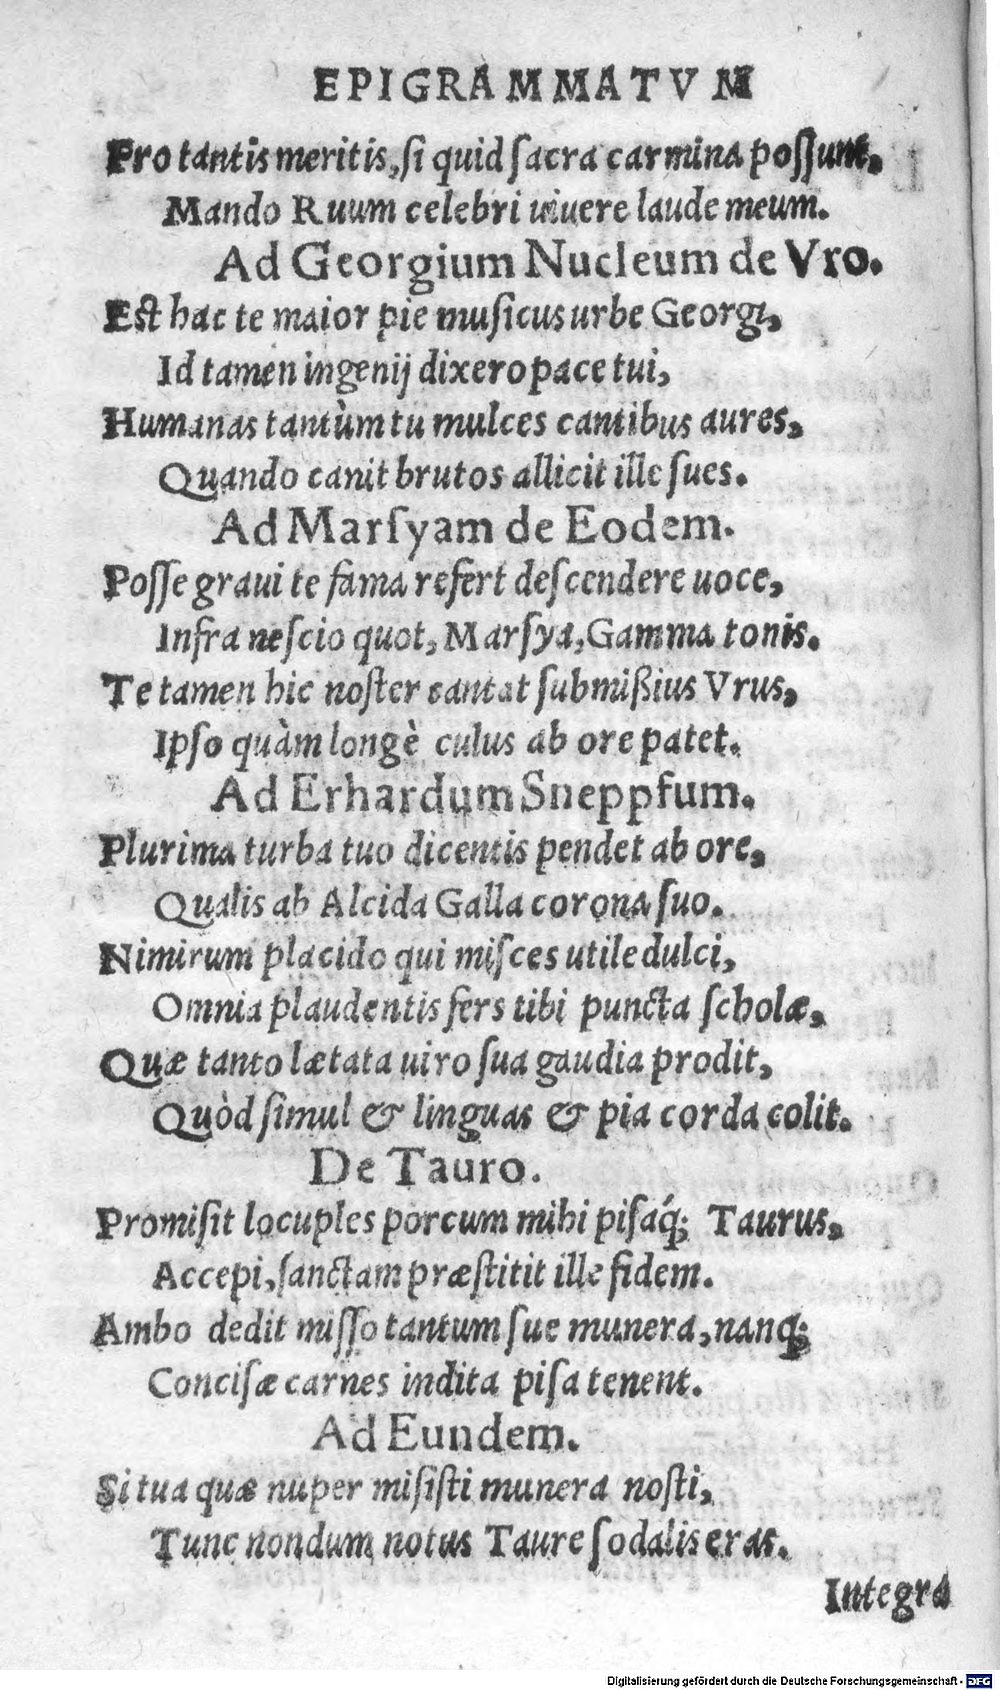 EPIGRAMMATVM
Pro tantis meritis, si quid sacra carmina possunt,
Mando Ruum celebri uiuere laude meum.
Ad Georgium Nucleum de Vro.
Est hac te maior pie musicus urbe Georgi,
Id tamen ingenij dixero pace tui,
Humanas tantùm tu mulces cantibus aures,
Quando canit brutos allicit ille sues.
Ad Marsyam de Eodem.
Posse graui te fama refert descendere uoce,
Infra nescio quot, Marsya, Gamma tonis.
Te tamen hic noster cantat submißius Vrus,
Ipso quàm longè culus ab ore patet.
Ad Erhardum Sneppfum.
Plurima turba tuo dicentis pendet ab ore,
Qualis ab Alcida Galla corona suo.
Nimirum placido qui misces utile dulci,
Omnia plaudentis fers tibi puncta scholæ,
Quæ tanto lætata uiro sua gaudia prodit,
Quòd simul & linguas & pia corda colit.
De Tauro.
Promisit locuples porcum mihi pisaq́; Taurus,
Accepi, sanctam præstitit ille fidem.
Ambo dedit misso tantum sue munera, nanq;
Concisæ carnes indita pisa tenent.
Ad Eundem.
Si tua quæ nuper misisti munera nosti,
Tunc nondum notus Taure sodalis eras.
Integra
Digitalisierung gefördert durch die Deutsche Forschungsgemeinschaft - DFG